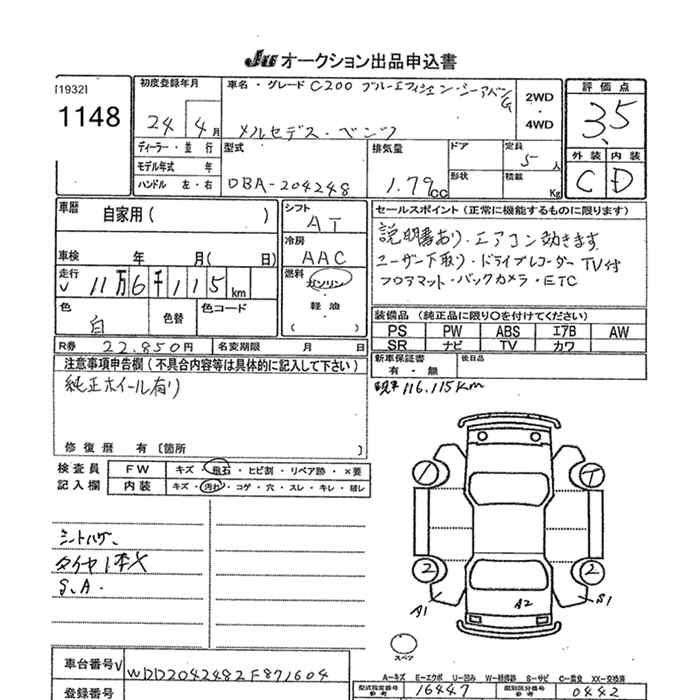 JU オークション出品申込書
[1932]
1148
初度登録年月
24 4月
車名・グレード C200 ブルーエフィシェンシーアバンG
メルセデス・ベンツ
2WD
・
4WD
評価点
3.5
外装 内装
C D
ディーラー・並行
モデル年式 年
ハンドル 左・右
型式
DBA-204248
排気量
1.79CC
ドア
形状
定員
5人
積載
Kg
車歴
自家用( )
車検 年 月( 日)
走行
√ 11万6千115km
色
白
色替
色コード
シフト
AT
冷房
AAC
燃料
ガソリン
・
軽油
( )
セールスポイント(正常に機能するものに限ります)
説明書あり・エアコン効きます
ユーザー下取り・ドライブレコーダー TV付
フロアマット・バックカメラ・ETC
装備品(純正品に限り○を付けてください)
PS PW ABS エアB AW
SR ナビ TV カワ
R券 22.850円 名変期限 月 日
新車保証書
有・無
後日品
注意事項申告欄(不具合内容等は具体的に記入して下さい)
純正ホイール有り
修復歴 有〔箇所 〕
現車 116.115km
検査員
記入欄
FW キズ・飛石・ヒビ割・リペア跡・×要
内装 キズ・汚れ・コゲ・穴・スレ・キレ・破レ
シートハガ、
タイヤ1本X
S.A.
1 1
2 2
A1 A2 S1
スペア
車台番号√ WDD2042482F871604
登録番号
A−キズ E−エクボ U−凹み W−補修跡 S−サビ C−腐食 XX−交換済
型式指定番号
参考
16447
類別区分番号
参考
0442